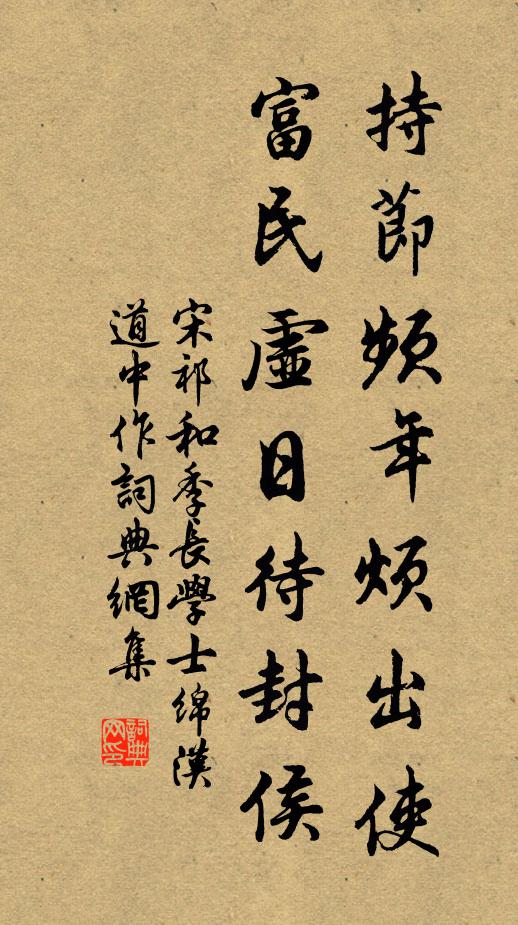 持節頻年煩出使
富民虛日待封侯
宋祁和季長學士綿漢
道中作詞典網集
詞典
网印